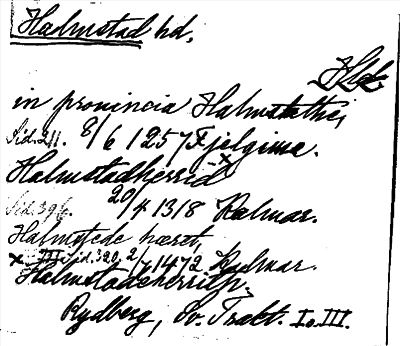 Halmstad hd,
Hld.
in provincia Halmstathæ,
Sid. 211. 8/6 1257 Fjelgima.
Halmstadherrid
Sid. 396. 20/4 1318 Kalmar.
Halmstede hæret,
x III Sid. 320. 2/7 1472 Kalmar.
Halmstadeherritz.
Rydberg, Sv. Trakt. I o. III.